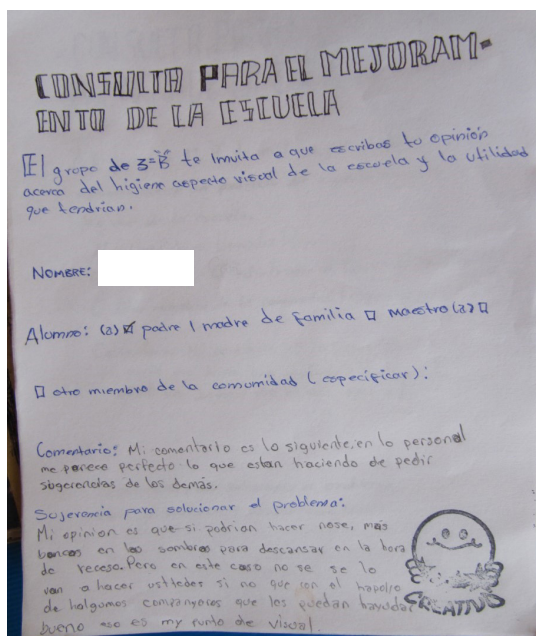 CONSULTA PARA EL MEJORAM-
ENTO DE LA ESCUELA
El grupo de 3=B te Invita a que escribas tu opinión
acerca del higiene aspecto visual de la escuela y la utilidad
que tendrían.
NOMBRE:
Alumno: (a) padre / madre de familia maestro (a)
otro miembro de la comunidad (especificar):
Comentario: Mi comentario es lo siguiente, en lo personal
me parece perfecto lo que estan haciendo de pedir
sugerencias de los demás.
Sujerencia para solucionar el problema:
Mi opinion es que si podrian hacer nose, mas
bancos en las sombras para descansar en la hora
de receso. Pero en este caso no se se lo
van a hacer usttedes si no que con el hapollo
de halgumos companyeros que los puedan hayudar
bueno eso es my punto de visual.
CREATIVO